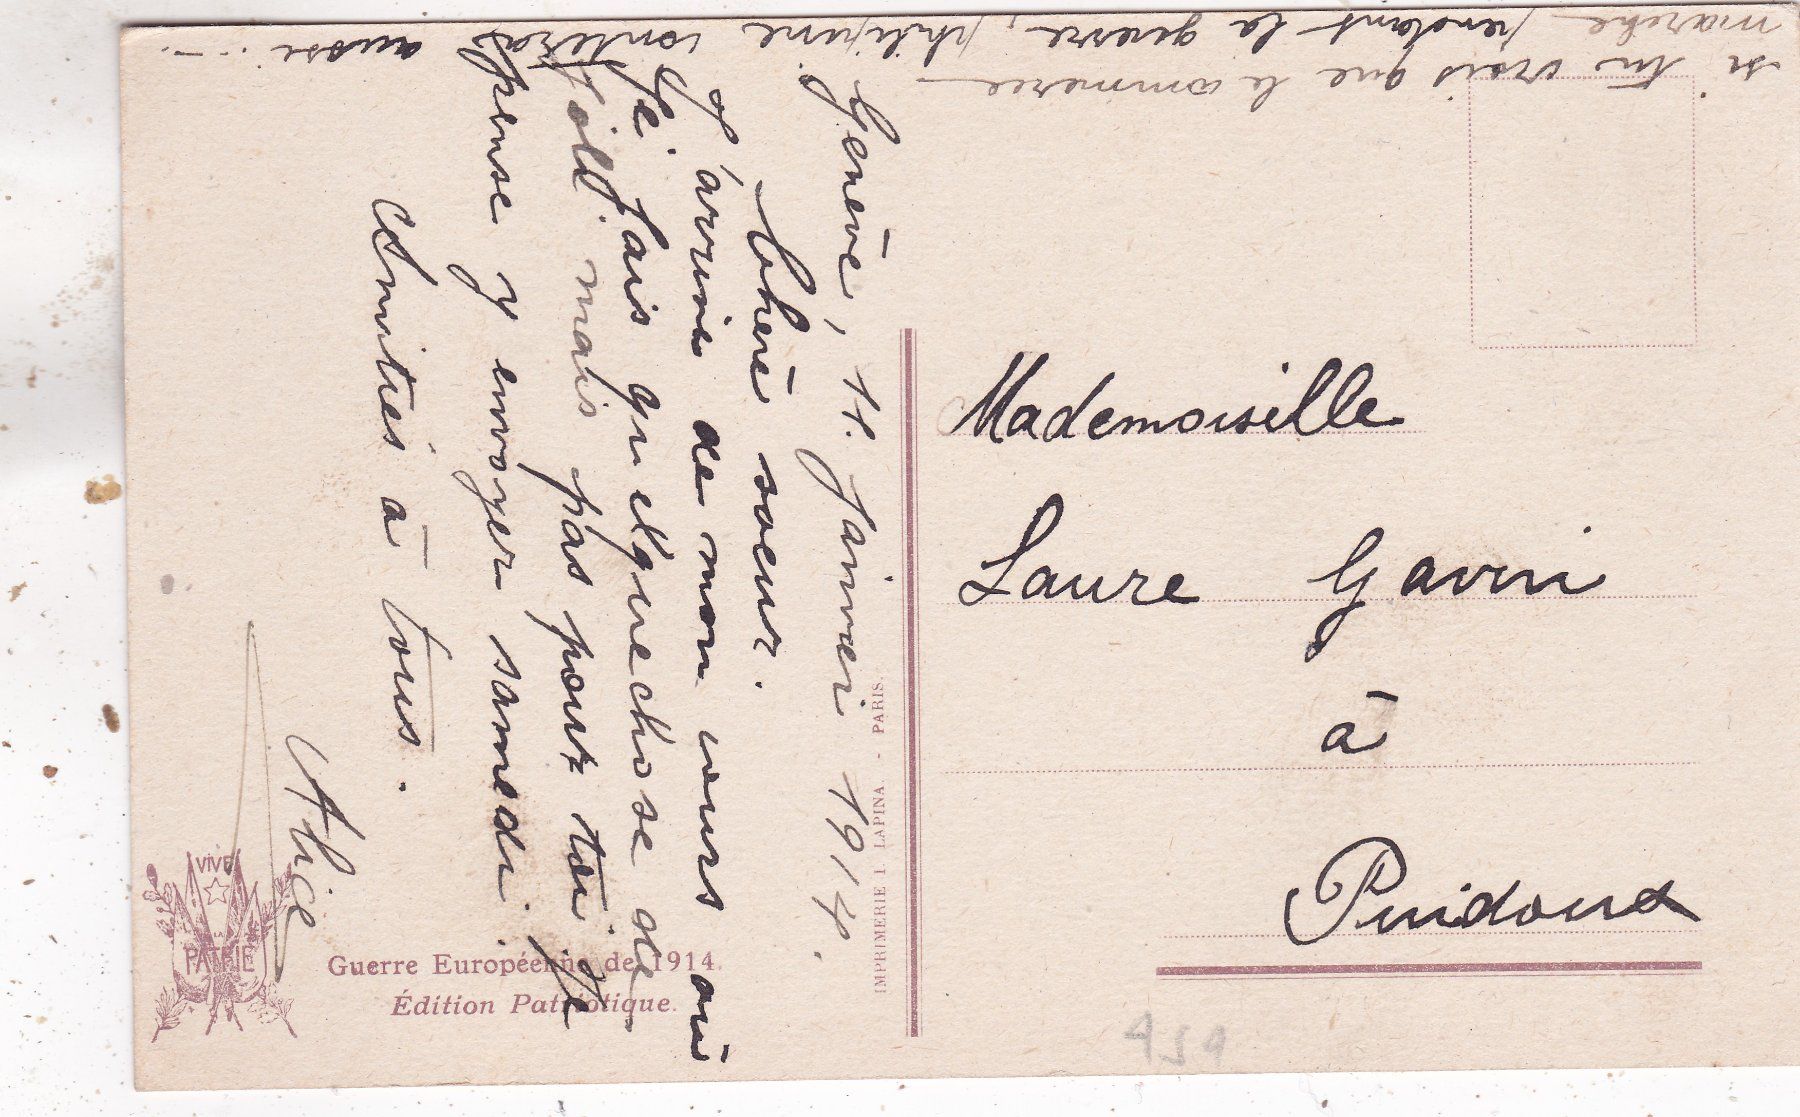 Genève, 14. Janvier 1914.
Chère soeur.
J'arrive de mon cours où
Je fais quelquechose de
joli mais pas pour toi je
pense y envoyer samedi.
Amitiés à tous.
Alice
si tu crois que le commerce
marche pendant la guerre,
aussi ...
Mademoiselle
Laure Gavin
à
Puidoux
IMPRIMERIE I. LAPINA. - PARIS.
VIVE
LA
PATRIE
Guerre Européenne de 1914.
Édition Patriotique.